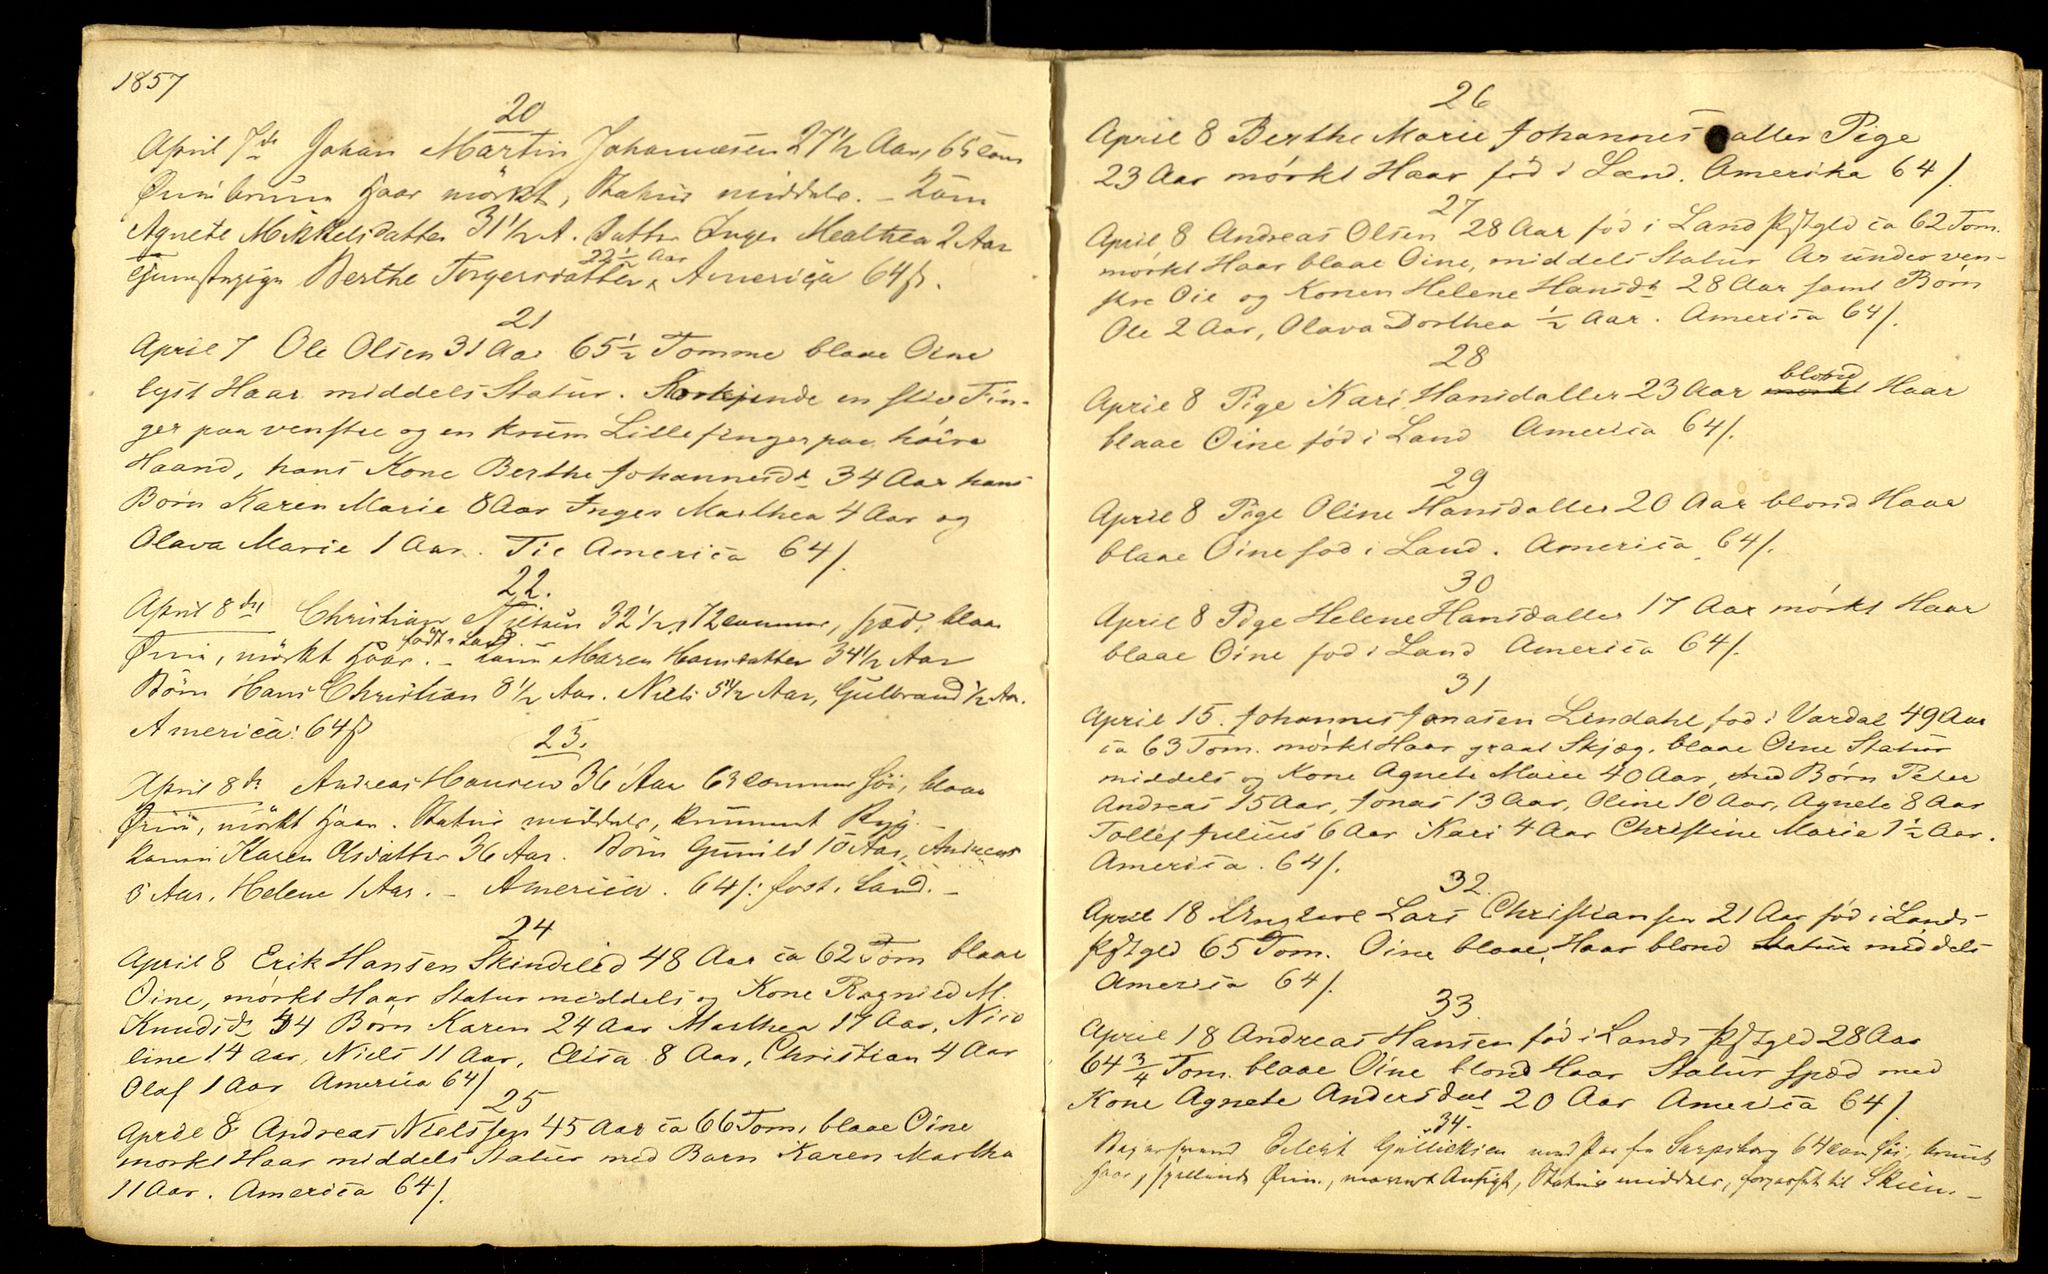 1857
20
April 7de Johan Martin Johannesen 27 1/2 Aar, 65 Tom
Øine brune Haar mörkt, Statur middels. - Kone
Agnete Mikkelsdatter 31 1/2 A. Datter Inger Mathea 2 Aar
22 1/2 Aar
Tjenestepige Berthe Torgersdatter, America 64 ß.
21
April 7 Ole Olsen 31 Aar 65 1/2 Tomme blaae Oine
lyst Haar middels Statur. Skjende en stiv Fin-
ger paa venstre og en krum Lillefinger paa høire
Haand, hans Kone Berthe Johannesdr 34 Aar hans
Børn Karen Marie 8 Aar Inger Marthea 4 Aar og
Olava Marie 1 Aar. Til America 64 /.
22.
April 8de Christian Nilsen 32 1/2, 72 Tommer, spæd, blaa
født i Land
Øine, mörkt Haar. - Kone Maren Hansdatter 34 1/2 Aar
Börn Hans Christian 8 1/2 Aar. Niels 5 1/2 Aar, Gulbrand 1/2 Aar.
America: 64 ß
23.
April 8de Andreas Hansen 36 Aar 63 Tommer höi, blaae
Øine, mörkt Haar. Statur middels, krummet Ryg.
Konen Karen Olsdatter 36 Aar. Börn Gunild 10 Aar, Andreas
5 Aar, Helene 1 Aar. - America. 64 /: født i Land. -
24
April 8 Erik Hansen Skindelid 48 Aar ca 62 Tom blaae
Oine, mørkt Haar Statur middels og Kone Ragnild M.
Knudsdr 44 Børn Karen 24 Aar Marthea 17 Aar, Nico
line 14 aar, Niels 11 Aar, Elisa 8 Aar, Christian 4 Aar
Olaf 1 Aar America 64 /
25
April 8 Andreas Nielssen 45 Aar ca 66 Tom, blaae Oine
mørkt Haar middels Statur med Barn Karen Martha
11 Aar. America 64 /.
26
April 8 Berthe Marie Johannesdatter Pige
23 Aar mørkt Haar fød i Land. Amerika 64 /.
27
April 8 Andreas Olsen 28 Aar fød i Land Pstgld ca 62 Tom.
mørkt Haar blaae Oine, middels Statur Ar under ven-
stre Oie og Konen Helene Hansdr 28 Aar samt Børn
Ole 2 Aar, Olava Dorthea 1/2 Aar. America 64 /.
28
blond
April 8 Pige Kari Hansdatter 23 Aar mørkt Haar
blaae Oine fød i Land America 64 /.
29
April 8 Pige Oline Hansdatter 20 Aar blond Haar
blaae Oine fød i Land. America 64 /.
30
April 8 Pige Helene Hansdatter 17 Aar mørkt Haar
blaae Oine fød i Land America 64 /.
31
April 15. Johannes Jonasen Lindahl fød i Vardal 49 Aar
ca 63 Tom. mørkt Haar graat Skjæg, blaae Oine Statur
middels og Kone Agnete Marie 40 Aar, med Børn Peter
Andreas 15 Aar, Jonas 13 Aar, Oline 10 Aar, Agnete 8 Aar
Tollef Julius 6 Aar Kari 4 Aar Christine Marie 1 1/2 Aar.
America. 64 /.
32.
April 18 Ungkarl Lars Christiansen 21 Aar fød i Lands
Pstgld 65 Tom. Oine blaae, Haar blond Statur middels
America 64 /.
33.
April 18 Andreas Hansen fød i Lands Pstgld 28 Aar
64 3/4 Tom. blaae Oine blond Haar Statur spæd med
Kone Agnete Andersdat 20 Aar America 64 /.
34.
Gullicksen med Pas fra Sarpsborg 64 Tom höi, bruunt
Haar, Øine, Ansigt, Statur middels, til Skien. -